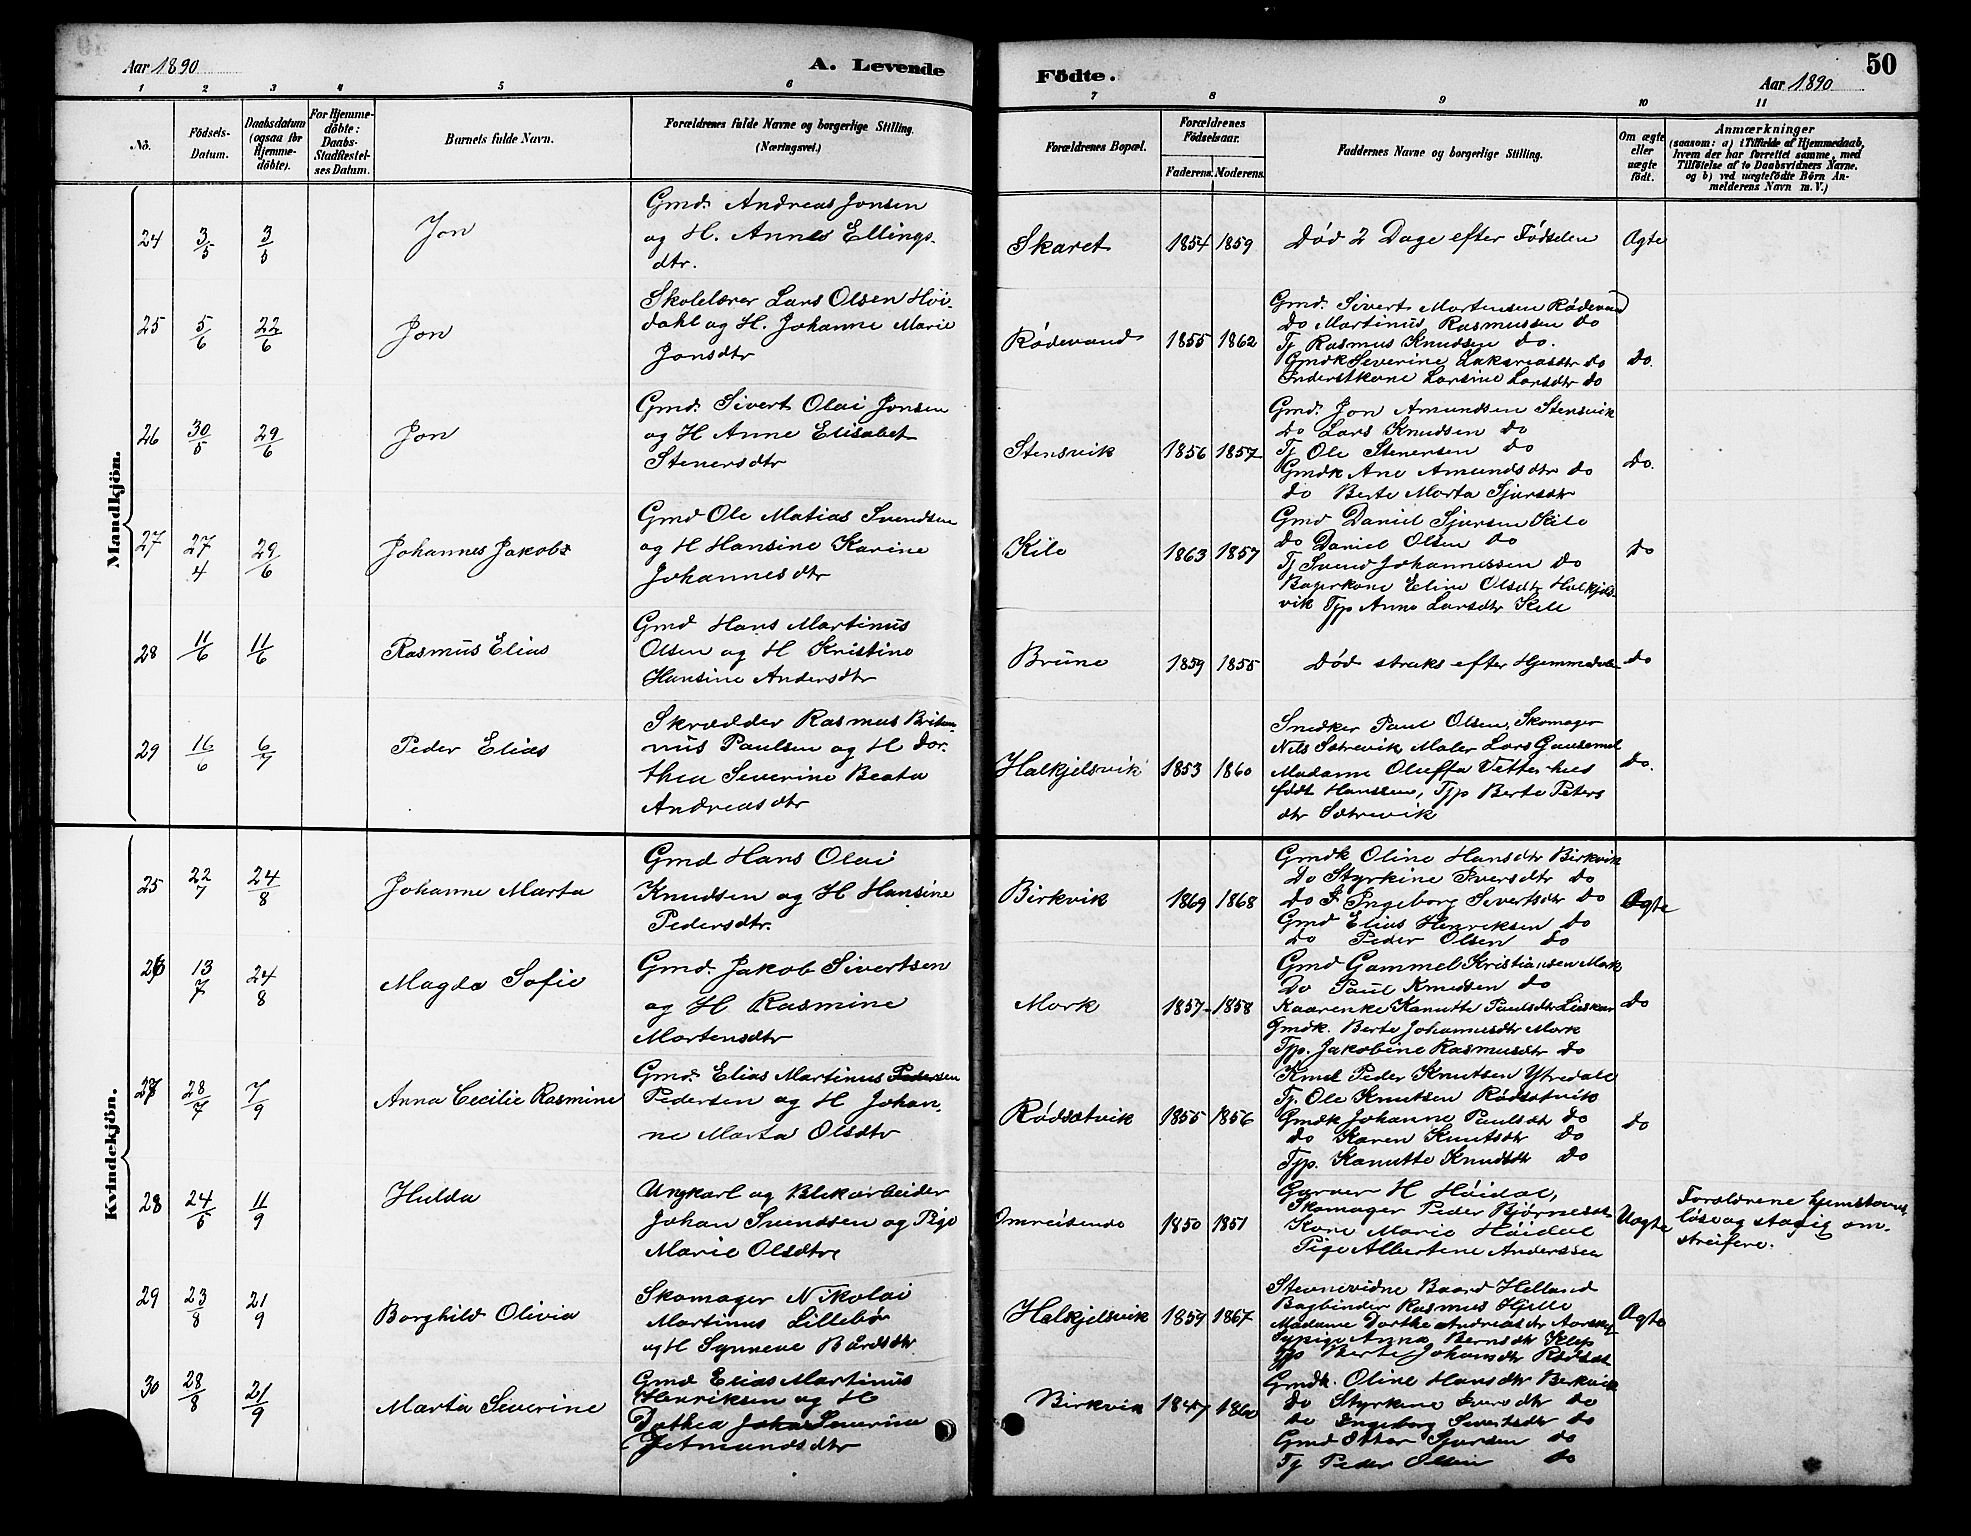 Aar 1890
A. Levende
Födte.
Aar 1890
50
1 2 3 4 5 6 7 8 9 10 11
No.
Födsels-
Datum.
Daabsdatum
(ogsaa for
Hjemme-
döbte).
For Hjemme-
döbte:
Daabs-
Stadfæstel-
ses Datum.
Barnets fulde Navn.
Forældrenes fulde Navne og borgerlige Stilling.
(Næringsvei.)
Forældrenes Bopæl.
Forældrenes
Födselsaar.
Faderens. Moderens.
Faddernes Navne og borgerlige Stilling.
Om ægte
eller
uægte
födt.
Anmærkninger
(saasom: a) i Tilfælde af Hjemmedaab,
hvem der har forrettet samme, med
Tilföielse af to Daabsvidners Navne.
og b) ved uægtefödte Börn An-
melderens Navn m. V.)
Mandkjön.
24 3/5 3/5 Jon
Gmd. Andreas Jonsen
og H. Anne Ellings-
dtr.
Skaret 1854 1859
Død 2 Dage efter Fødselen
Ægte
25 5/6 22/6 Jon
Skolelærer Lars Olsen Høi-
dahl og H. Johanne Marie
Jonsdtr
Rødevand 1855 1862
Gmd. Sivert Martensen Rødevand
do Martinus Rasmussen do
Tj Rasmus Knudsen do.
Gmdk Severine Zakariasdtr do
Inderstkone Larsine Larsdtr do
do.
26 30/5 29/6 Jon
Gmd. Sivert Olai Jonsen
og H Anne Elisabet
Stenersdtr
Stensvik 1856 1857
Gmd. Jon Amundsen Stensvik
do Lars Knudsen do
Tj Ole Stenersen do
Gmdk Ane Amundsdtr do
do Berte Marta Sjursdtr
do.
27 27/4 29/6 Johannes Jakob
Gmd Ole Matias Svendsen
og H Hansine Karine
Johannesdtr
Kile 1863 1857
Gmd Daniel Sjursen Kile
do Daniel Olsen do
Tj Svend Johannessen do
Bagerkone Eline Olsdtr Halkjels-
vik Tjp Anne Larsdtr Kile
do
28 11/6 11/6 Rasmus Elias
Gmd Hans Martinus
Olsen og H Kristine
Hansine Andersdtr
Brune 1859 1855
Død straks efter Hjemmedaab
do
29 16/6 6/7 Peder Elias
Skrædder Rasmus Britan-
nus Paulsen og H Dor-
thea Severine Beata
Andreasdtr
Halkjelsvik 1853 1860
Snedker Paul Olsen, Skomager
Nils Sætrevik Maler Lars Gausemel
Madame Oluffa Vetterhus
født Hanssen, Tjp Berte Peters
dtr Sætrevik
do.
Kvindekjön.
25 22/7 24/8 Johanne Marta
Gmd Hans Olai
Knudsen og H Hansine
Pedersdtr.
Birkvik 1869 1868
Gmdk Oline Hansdtr Birkvik
do Styrkine Iversdtr do
do Ingeborg Sivertsdtr do
Gmd Elias Henriksen do
do Peder Olsen do
Ægte
26 13/7 24/8 Magda Sofie
Gmd. Jakob Sivertsen
og H Rasmine
Martensdtr
Mork 1857 1858
Gmd Gammel Kristiansen Mork
do Paul Knudsen do
Kaarenke Kanutte Paulsdtr
Gmdk. Berte Johannesdtr Mork
Tjp. Jakobine Rasmusdtr do
do
27 28/7 7/9 Anna Cecilie Rasmine
Gmd. Elias Martinus Pedersen
Pedersen og H Johan-
ne Marta Olsdtr
Rødsætvik 1855 1856
Kmd Peder Knutsen Ytredale
Tj. Ole Knutsen Rødsætvik
Gmdk Johanne Paulsdtr do
do Karen Knutsdtr do
Tjp. Kanutte Knudsdtr do
do
28 24/5 11/9 Hulda
Ungkarl og Blikarbeider
Johan Svendsen og Pige
Marie Olsdtr
Omreisende 1850 1851
Garver H Høidal,
Skomager Peder Bjørnesæt
Kone Marie Høidal
Pige Albertene Anderssen
Uægte
Forældrene hjemstavns-
løse og stadig om-
streifere.
29 23/8 21/9 Borghild Olivia
Skomager Nikolai
Martinus Lillebø
og H Synneve Bårdsdtr
Halkjelsvik 1859 1867
Stevnevidne Baard Helland
Bogbinder Rasmus Hjelle
Madame Dorthe Andreasdtr
Sypige Anna Berntsdtr Klep
Tjp Berte Johansdtr Rødsæt
Ægte
30 28/8 21/9 Marta Severine
Gmd Elias Martinus
Henriksen og H
Dothea Severine
Amundsdtr
Birkvik 1847 1860
Gmdk. Oline Hansdtr Birkvik
do Styrkine Iversdtr do
do Ingeborg Sivertsdtr do
Gmd Etter Sjursen do
Tj Peder Olsen do